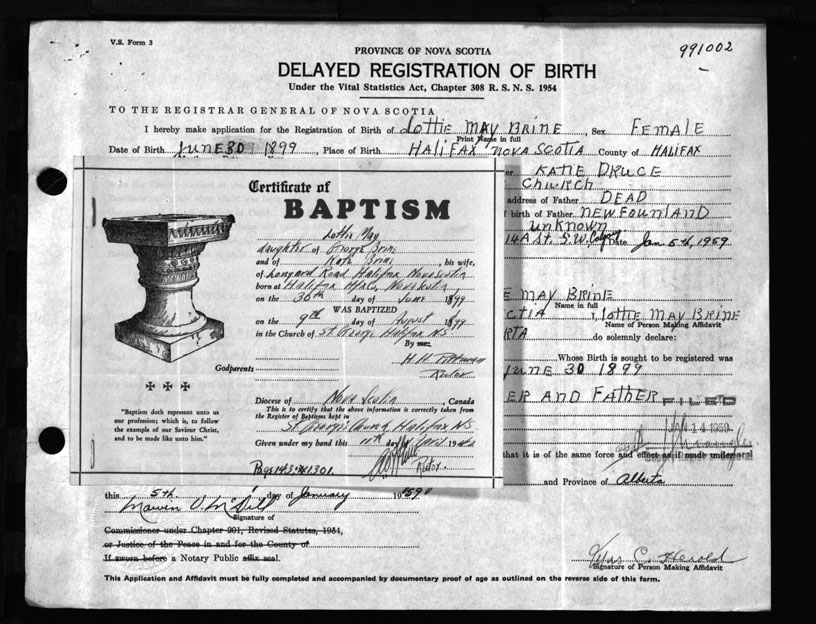 V.S. Form 3
991002
PROVINCE OF NOVA SCOTIA
DELAYED REGISTRATION OF BIRTH
Under the Vital Statistics Act, Chapter 308 R. S. N. S. 1954
TO THE REGISTRAR GENERAL OF NOVA SCOTIA
I hereby make application for the Registration of Birth of Lottie May Brine, Sex Female
Print Name in full
Date of Birth June 30 1899, Place of Birth Halifax Nova Scotia County of Halifax
er Katie Druce
Church
address of Father Dead
f birth of Father Newfounland
unknown
14A St. S.W. Calgary Date Jan 5th, 1959
Certificate of
BAPTISM
Lottie May
daughter of George Brine
and of Kate Brine, his wife,
of Longard Road Halifax Nova Scotia
born at Halifax Hfx Co, Nova Scotia
on the 30th day of June 1899
WAS BAPTIZED
on the 9th day of August 1899
in the Church of St George Halifax N.S.
By me
H. H. Pittman
Rector
Godparents
Diocese of Nova Scotia, Canada
This is to certify that the above information is correctly taken from
the Register of Baptisms kept in
St George's Church, Halifax N.S.
Given under my hand this 11th day of April 194
Rector.
Page 143 # 1301.
"Baptism doth represent unto us
our profession; which is, to follow
the example of our Saviour Christ,
and to be made like unto him."
E May Brine
Name in full
OTIA, Lottie May Brine
Name of Person Making Affidavit
RTA do solemnly declare:
Whose Birth is sought to be registered was
June 30 1899
ER and Father
FILED
JAN 14 1959
that it is of the same force and effect as if made under
and Province of Alberta
this 5th. day of January 1959
Signature of
Commissioner under Chapter 201, Revised Statutes, 1954,
or Justice of the Peace in and for the County of
If sworn before a Notary Public affix seal.
Mrs C. Herold
Signature of Person Making Affidavit
This Application and Affidavit must be fully completed and accompanied by documentary proof of age as outlined on the reverse side of this form.